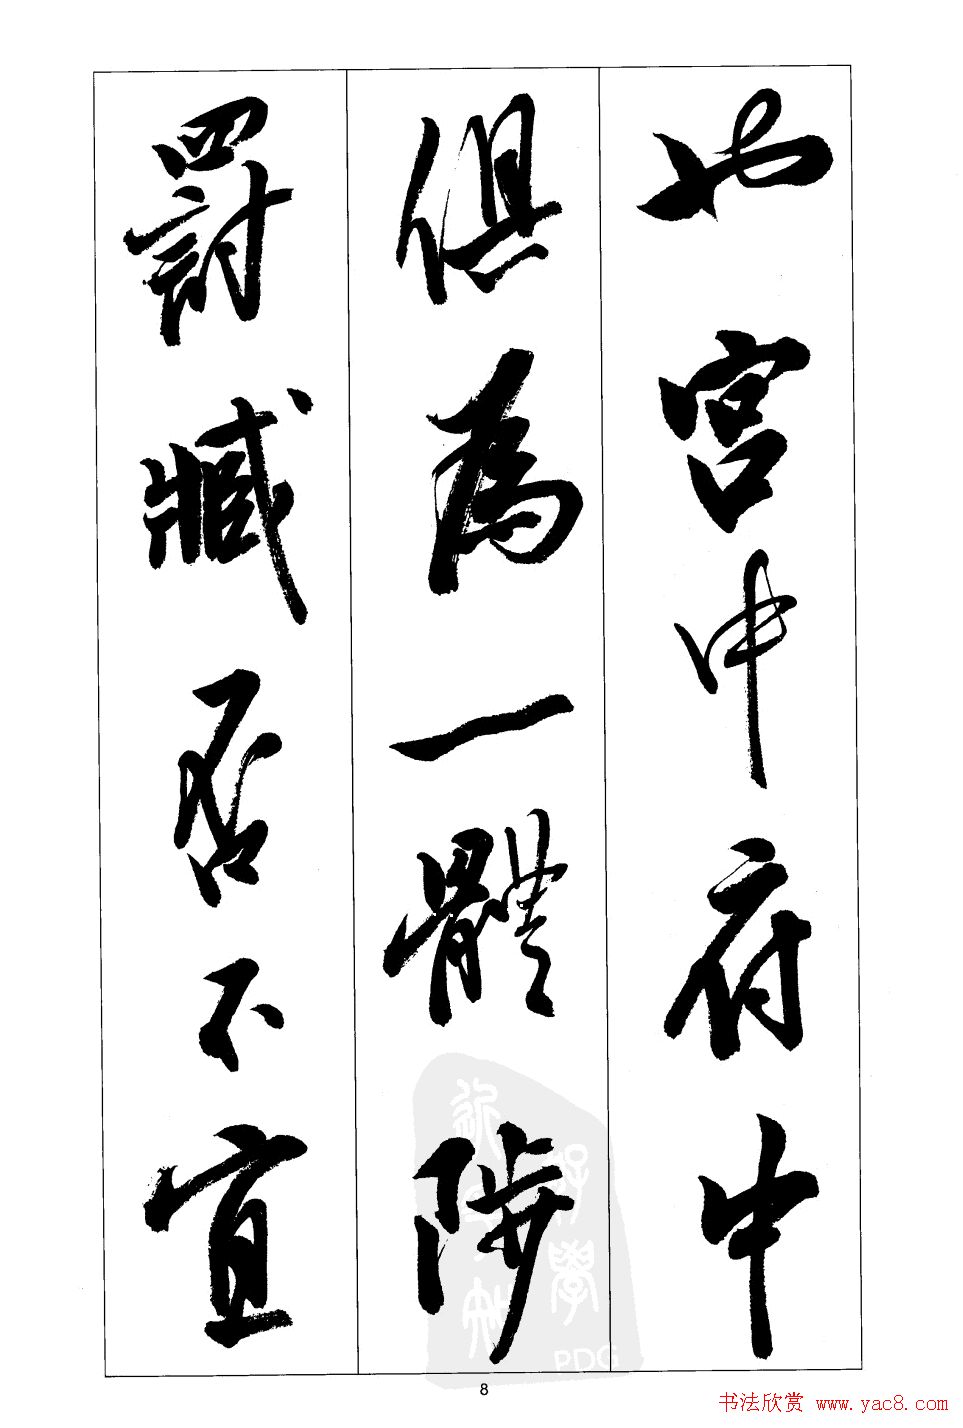 也宮中府中
俱為一體陟
罰臧否不宜
8
书法欣赏 www.yac8.com
PDG